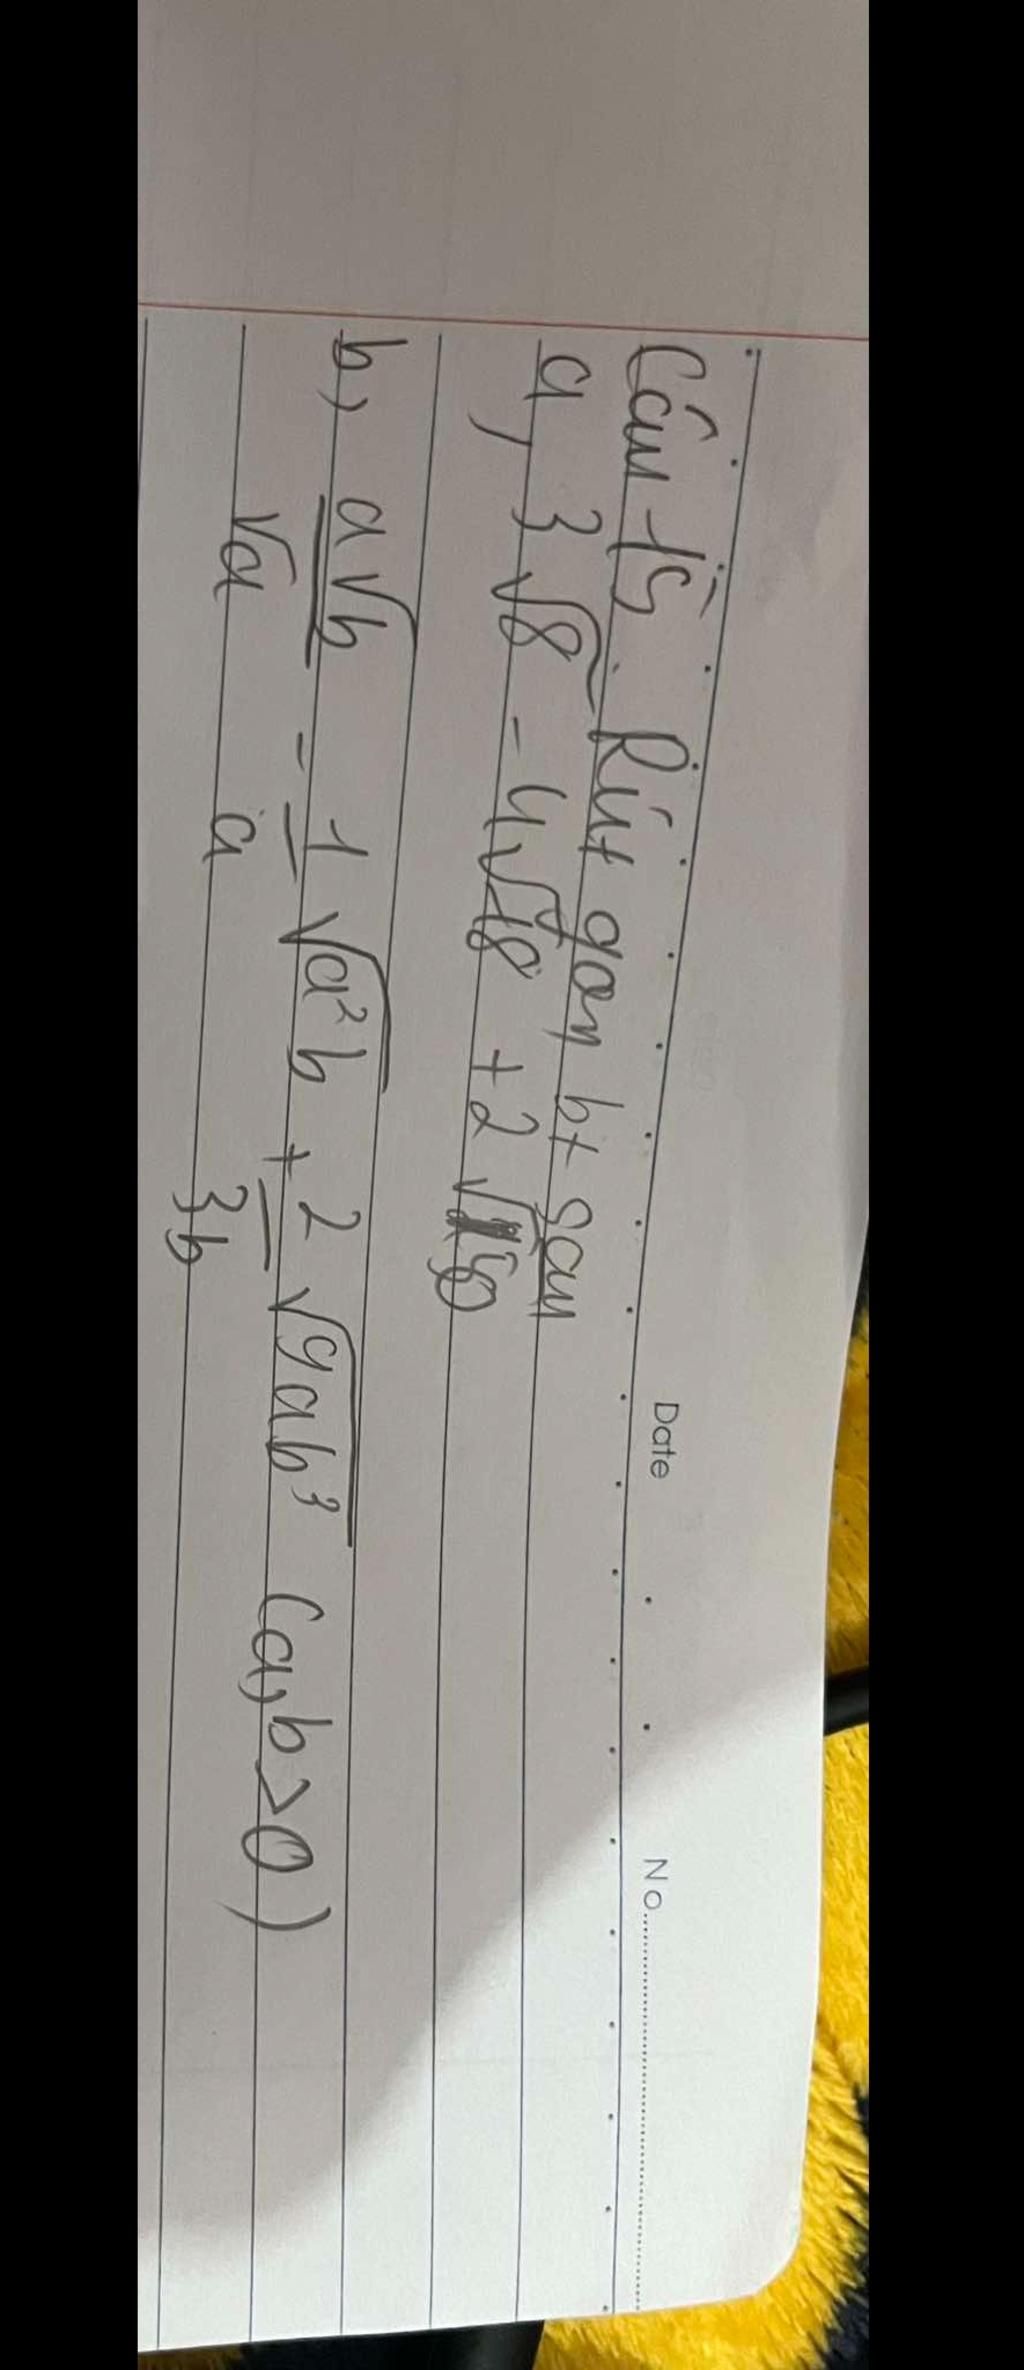 Date
No
Câu 15. Rút gọn bt sau
a, 3√8 - 4√18 + 2√50
b, a√b/√a - 1/a √a²b + 2/3b √9ab³ (a,b>0)